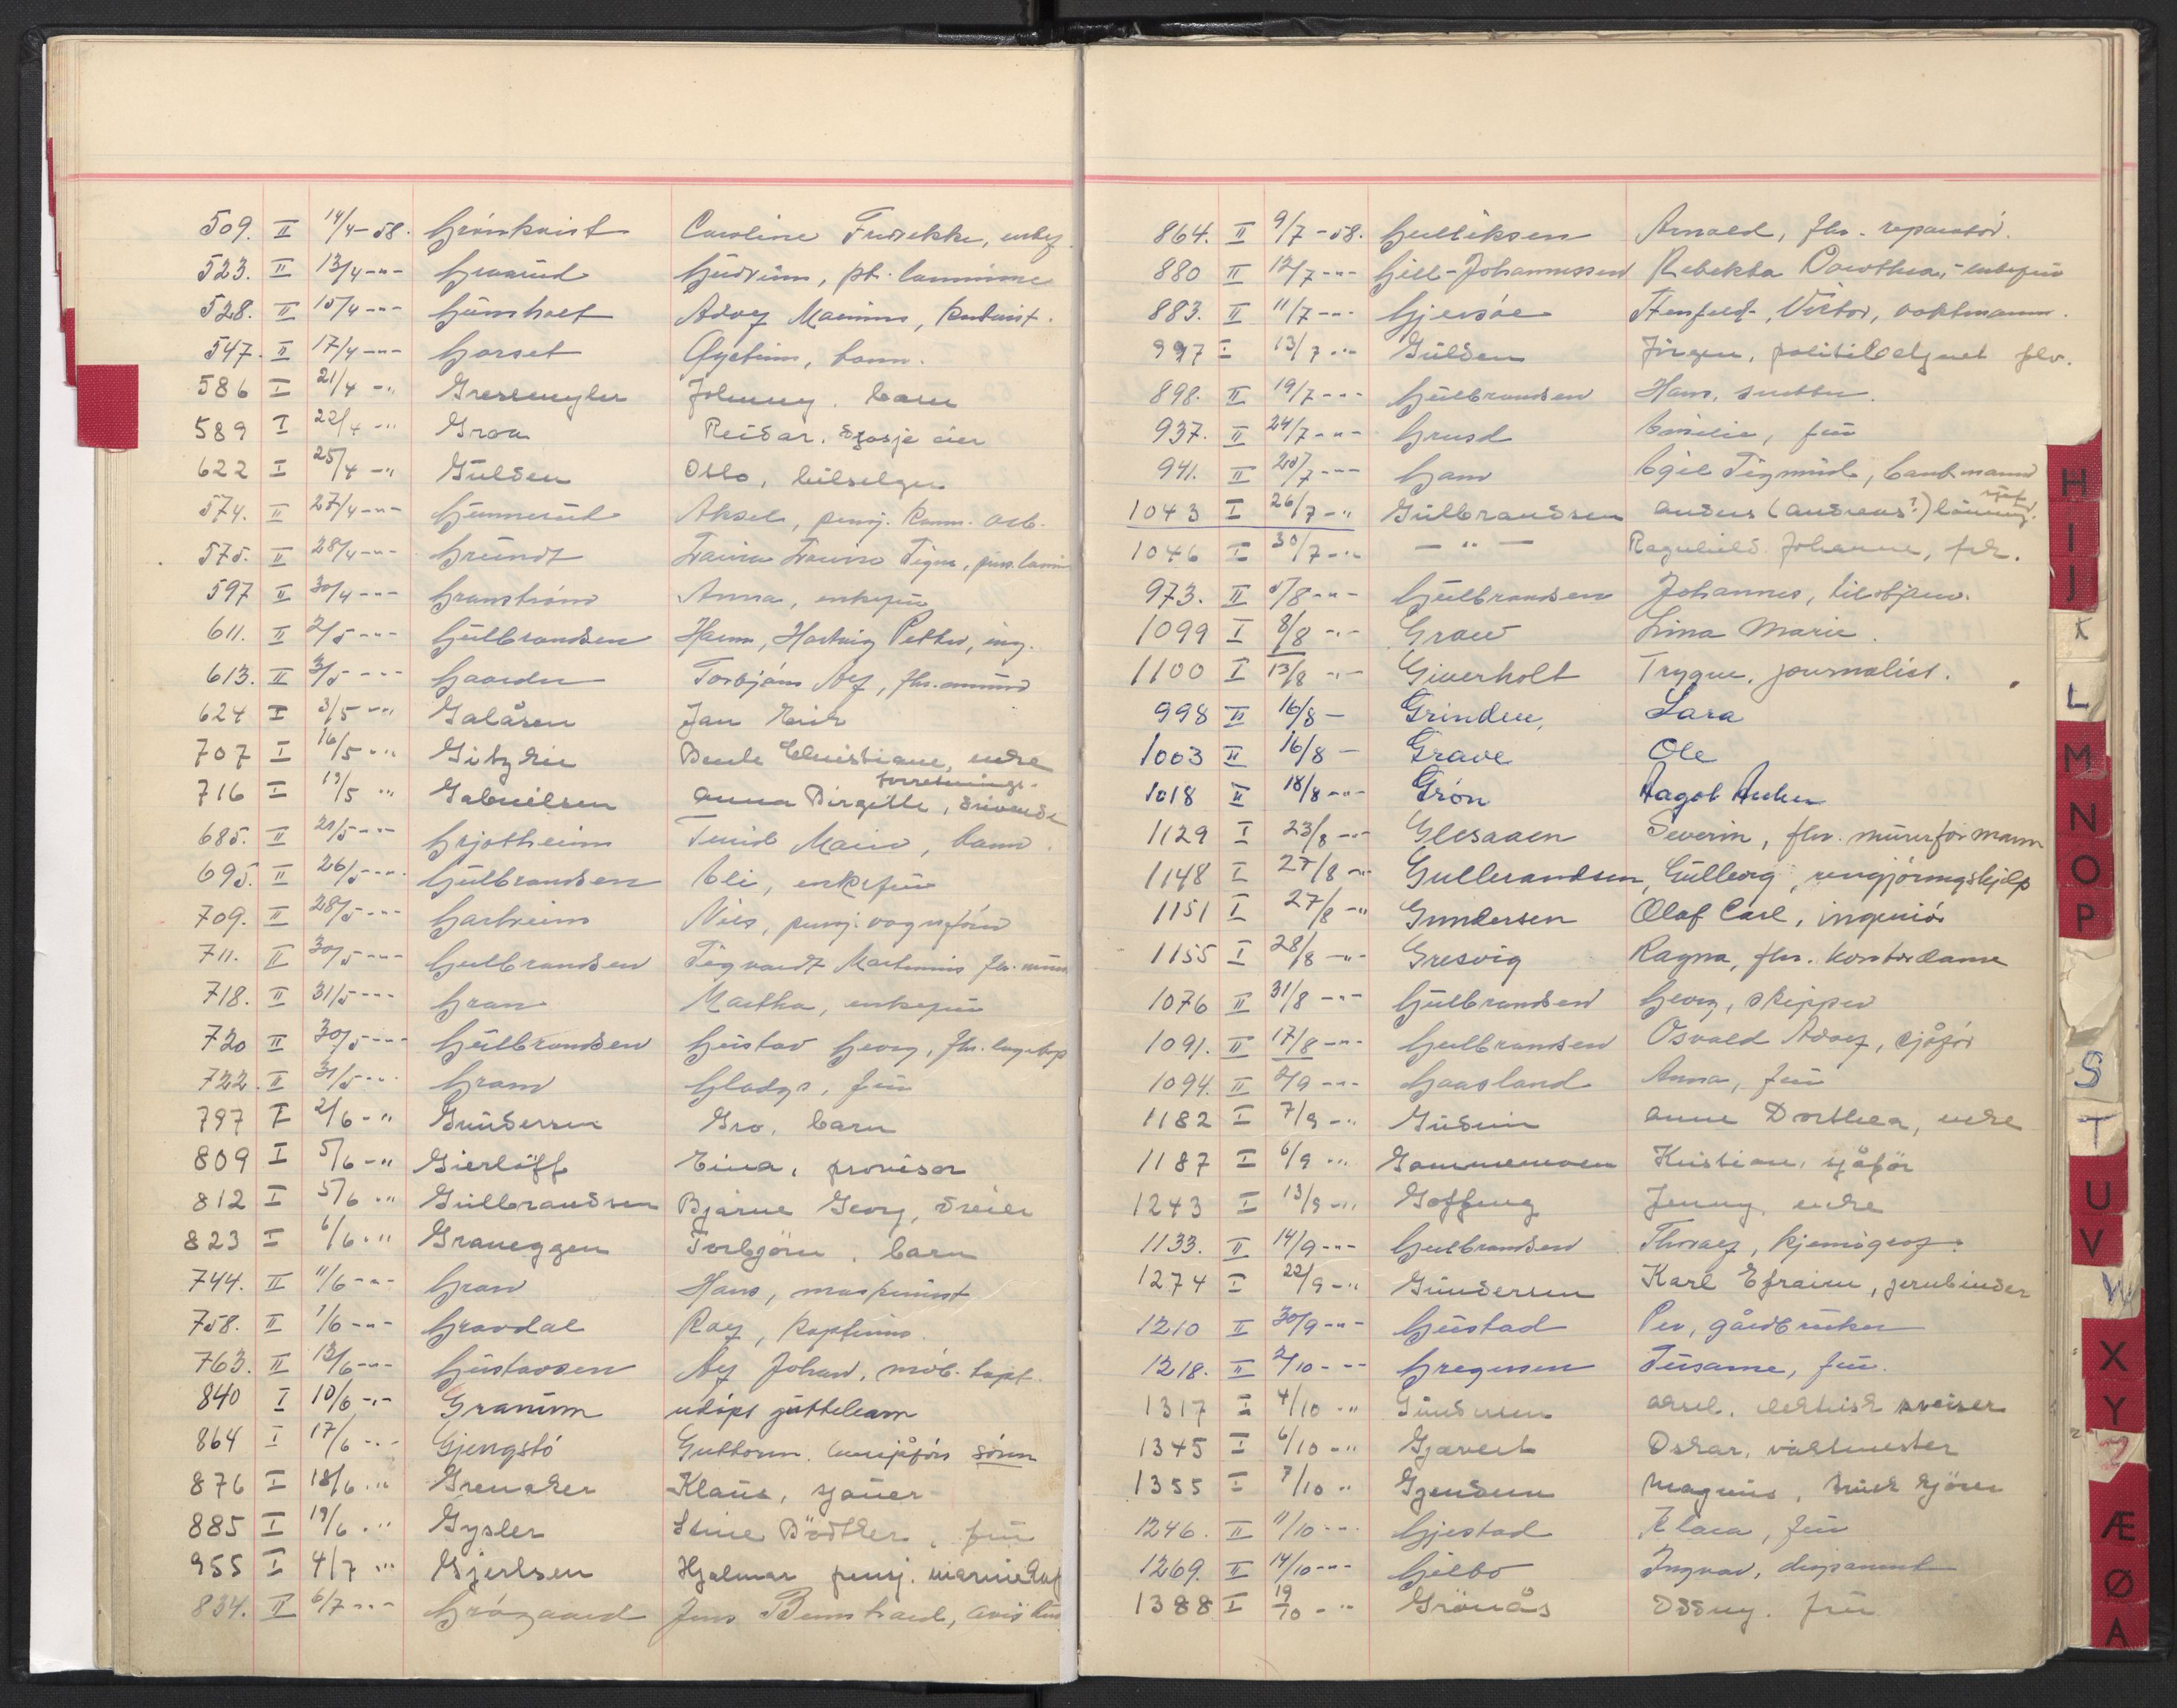 509. II 14/4-58. Grönkvist Caroline Fredrikke, enkef
523. II 13/4 -"- Gudvinn, pt.
528. II 15/4 -"- Gumholt Adolf Marinus,
547. II 17/4 -"- Garset Øystein, barn.
586 I 21/4 -" Johnny. barn
589 I 22/4 -" Gran Reidar, eier
622 I 25/4 -" Gulden Otto, bilselger
574. II 27/4 -"- Aksel, pensj. komm. arb.
575. II 28/4 -"- Grundt
597 II 30/4 -"- Granström Anna, enkefru
611. II 2/5 -"- Gulbrandsen Harm, Hartvig Petter, ing.
613. II 3/5 -"- Gaarder Torbjörn Alf, fhv.
624 I 3/5 -"- Galåsen Jan Erik
707 I 16/5 -" Bente Christiane, enke
716 I 19/5 " Gabrielsen Anna Birgitte, forretnings- drivende
685. II 21/5 -"- Grjotheim Turid Marie, barn.
695. II 26/5 -"- Gulbrandsen Eli, enkefru
709. II 28/5 -"- Garheim Nils, pensj. vognfører
711. II 30/5 -"- Gulbrandsen Sigvardt Martinius fhv.
718. II 31/5 -"- Gran Martha, enkefru
720 II 30/5 -"- Gulbrandsen Gustav Georg, fhv.
722. II 31/5 -"- Gram Gladys, fru
797 I 2/6 -" Gundersen Gro, barn
809 I 5/6 -" Gierlöff Eina, provisor
812 I 5/6 -" Gulbrandsen Bjarne Georg, dreier
823 I 6/6 -" Graneggen Torbjörn, barn
744. II 11/6 -"- Gran Hans, maskinist
758. II 1/6 -"- Gravdal Rolf, kaptein.
763. II 12/6 -"- Gustavsen Alf Johan, möb. tapt.
840 I 10/6 -"- Granum udöpt guttebarn
864 I 17/6 -"- Gjengstö Guttorm, sönn
876 I 18/6 -" Grenaker Klaus, sjauer
885 I 19/6 -" Gysler Stine Bödtker, fru
955 I 4/7 -" Gjertsen Hjalmar pensj. marinekap
834. II 6/7 -"- Grögaard Jens Bernhard,
864. II 9/7-58. Gulliksen Arnold, fhv. reparatör.
880 II 12/7 -"- Gill-Johannessen Rebekka Dorothea, enkefru
883. II 11/7 -"- Gjersöe Stenfeldt, Victor, vaktmann.
997 I 13/7 -"- Gulden Jörgen, politibetjent fhv.
898. II 19/7 -"- Gulbrandsen Hans, snekker.
937. II 24/7 -"- Grusd Emilie, fru
941. II 20/7 -"- Gam Egil Sigmund, bankmann
1043 I 26/7 -" Gulbrandsen Anders (Andreas?)
1046 I 30/7 -"- - " - Ragnhild Johanne, frk.
973. II 5/8 -"- Gulbrandsen Johannes,
1099 I 8/8 -"- Graw Lina Marie.
1100 I 13/8 -"- Giverholt Trygve, journalist.
998 II 16/8 - Grinden, Lara
1003 II 16/8 - Grave Ole
1018 II 18/8 -"- Grön Aagot Anker
1129 I 23/8 -"- Glesaaen Severin, fhv. murerformann
1148 I 27/8 -"- Gulbrandsen, Gullborg, rengjöringshjelp
1151 I 27/8 -" Gundersen Olaf Carl, ingeniör
1155 I 28/8 -"- Gresvig Ragna, fhv. kontordame
1076 II 31/8 -"- Gulbrandsen Georg, skipper
1091. II 17/8 -"- Gulbrandsen Osvald Adolf, sjåför
1094. II 2/9 -"- Gaasland Anna, fru
1182 I 7/9 -" Gudim Anne Dorthea, enke
1187 I 6/9 -" Gammemoen Kristian, sjåför
1243 I 13/9 -" Goffeng Jenny, enke
1133. II 14/9 -"- Gulbrandsen Thoralf, kjemigraf.
1274 I 22/9 -" Gundersen Karl Efraim, jernbinder
1210 II 30/9 -"- Gustad Per, gårdbruker
1218. II 2/10 -"- Gregersen Susanne, fru.
1317 I 4/10 -" Gundersen Aksel, elektrisk sveiser
1345 I 6/10 -" Gjævert Oskar, vaktmester
1355 I 7/10 " Gjendem Magnus,
1246. II 11/10 -"- Gjestad Klara, fru
1269. II 14/10 -"- Gilbo Ingvar, disponent
1388 I 19/10 -" Grönås Oddny. fru
H
I
J
K
L
M
N
O
P
S
T
U
V
W
X
Y
Z
Æ
Ø
A